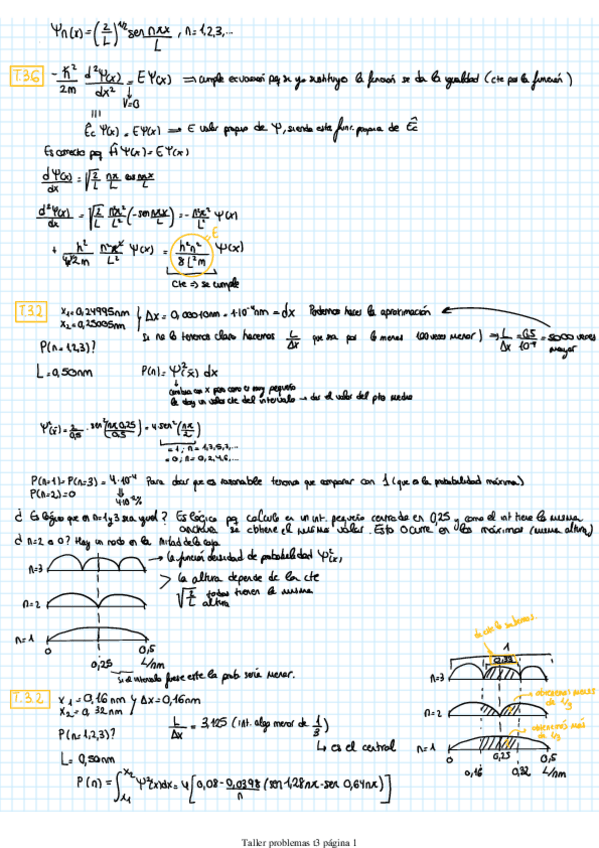 Ψn(x)=(2/L)^1/2 sen nπx/L , n=1,2,3,...
T.36 -ħ²/2m d²Ψ(x)/dx² = EΨ(x) ⇒ cumple ecuación pq si yo sustituyo la función se da la igualdad (cte por la función)
V=0
Êc Ψ(x) = EΨ(x) ⇒ E valor propio de Ψ, siendo esta func. propia de Êc
Es correcto pq ĤΨ(x)=EΨ(x)
dΨ(x)/dx = √(2/L) nπ/L cos nπx/L
d²Ψ(x)/dx = √(2/L) n²π²/L² (-sen nπx/L) = -n²π²/L² Ψ(x)
+ h²/4π²2m n²π²/L² Ψ(x) = h²n²/8L²m Ψ(x)
E
Cte ⇒ se cumple
T.32 x1=0,24995nm
x2=0,25005nm } Δx = 0,00010nm = 1·10⁻⁴nm = dx Podemos hacer la aproximación
Si no lo tenemos claro hacemos L/Δx que sea por lo menos 100 veces menor) ⇒ L/Δx = 0,5/10⁻⁴ = 5000 veces mayor
P(n=1,2,3)?
L=0,50nm P(n) = Ψ²(x̄) dx
cambia con x pero como es muy pequeño
le doy un valor cte del intervalo → dar el valor del pto medio
Ψ²(x̄)=2/0,5 · sen²(nπ0,25/0,5) = 4·sen²(nπ/2)
=1; n=1,3,5,7,...
=0; n=0,2,4,6,...
P(n=1)=P(n=3)=4·10⁻⁴ Para decir que es razonable tenemos que comparar con 1 (que es la probabilidad máxima)
P(n=2)=0
4·10⁻²%
¿ Es lógico que en n=1 y 3 sea igual? Es lógico pq calculo en un int. pequeño centrado en 0,25 y como el int tiene la misma
anchura se obtiene el mismo valor. Esto ocurre en los máximos (misma altura)
¿ n=2 = 0? Hay un nodo en la mitad de la caja
n=3 → la función densidad de probabilidad Ψ²(x)
> la altura depende de la cte
n=2 √(2/L) todas tienen la misma altura
n=1
0 0,25 0,5 L/nm
si el intervalo fuese este la prob. sería menor.
de cte lo sabemos.
1
0,33
n=3
→ obtenemos menos de 1/3
n=2
→ obtenemos más de 1/3
n=1
0 0,16 0,25 0,32 0,5 L/nm
T.3.2 x1=0,16nm
x2=0,32nm } Δx=0,16nm
P(n=1,2,3)? L/Δx = 3,125 (int. algo menor de 1/3)
↳ es el central
L=0,50nm
P(n) = ∫x1 x2 Ψ²(x)dx = 4[0,08 - 0,0398/n (sen 1,28nπ - sen 0,64nπ)]
Taller problemas t3 página 1